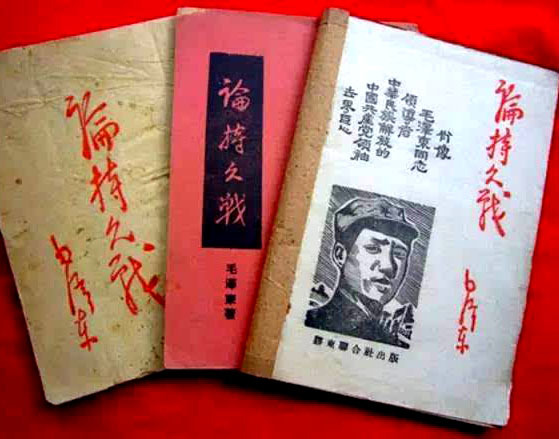 論持久战
毛澤东
論持久戰
毛澤東著
論持久战
毛澤东
肖像
毛澤東同志
領導着
中華民族解放的
中國共產党領袖
膠東聯合社出版